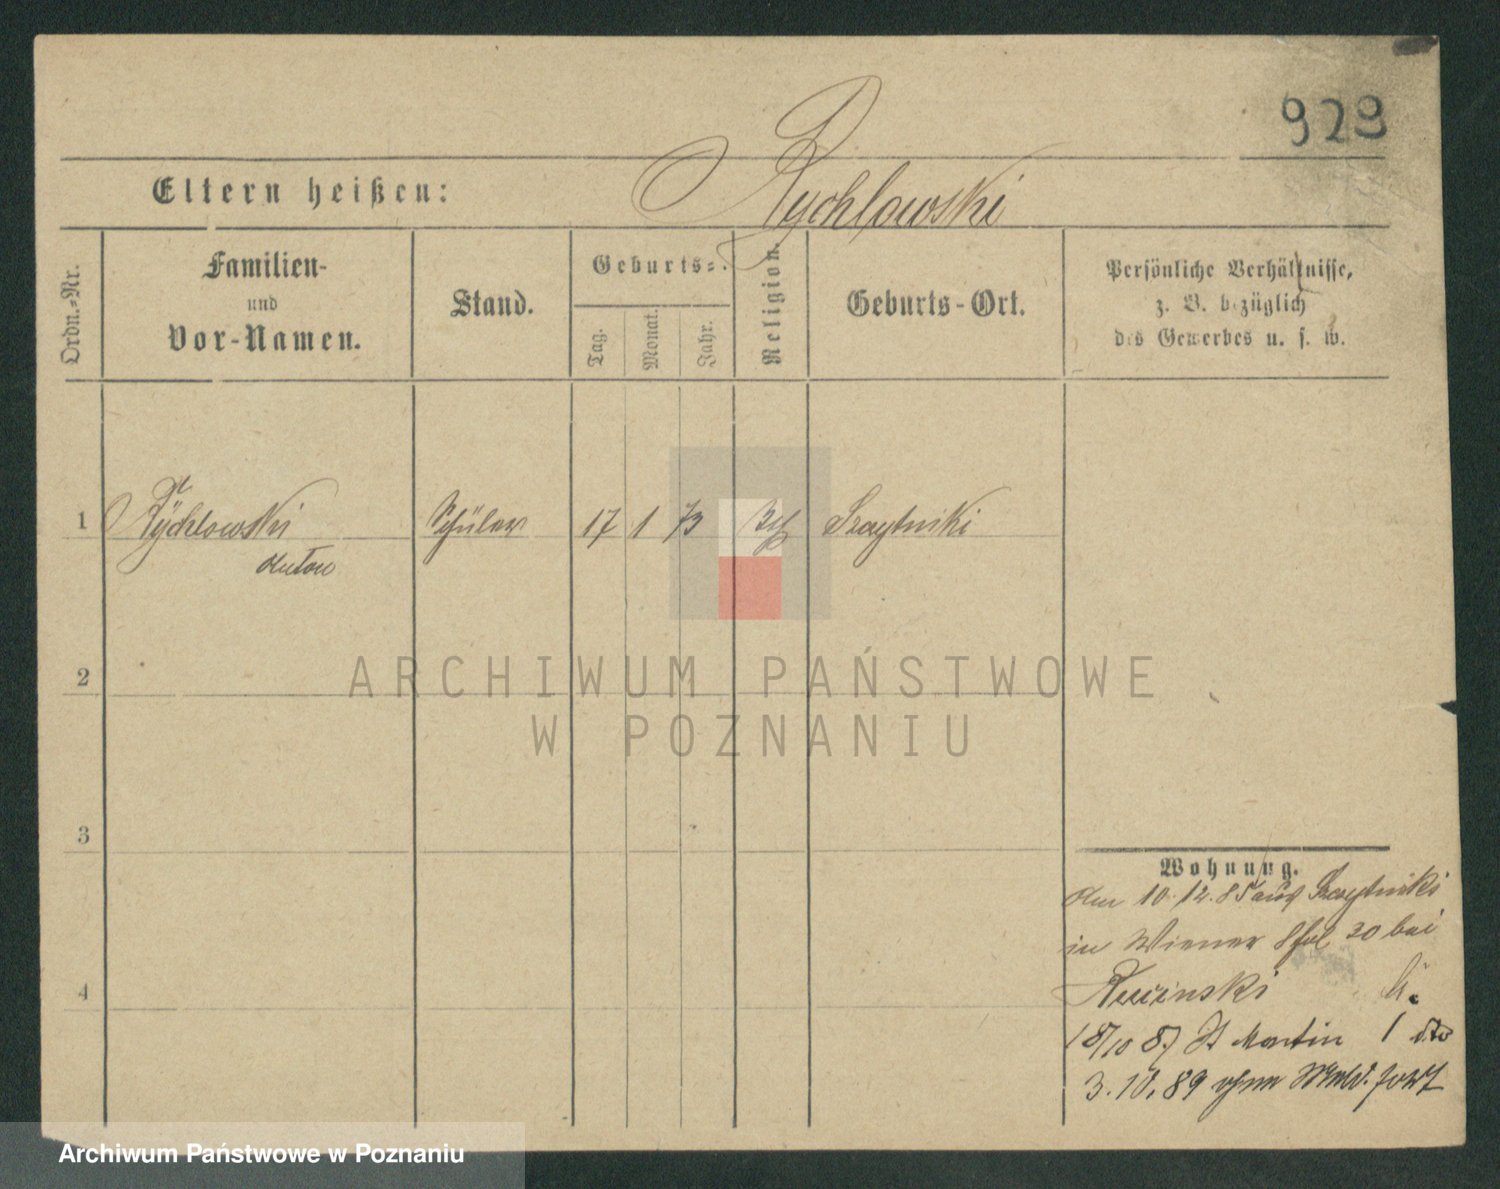 929
Eltern heißen: Rychlowski
Ordn.-Nr.
Familien-
und
Vor-Namen.
Stand.
Geburts-
Tag.
Monat.
Jahr.
Religion.
Geburts-Ort.
Persönliche Verhältnisse,
z. B. bezüglich
des Gewerbes u. s. w.
1 Rychlowski Schüler 17 1 73 kth Szczytniki
Anton
2
ARCHIWUM PAŃSTWOWE
W POZNANIU
3
Wohnung.
10. 12. 85 aus Szczytniki
in Wiener 30 bei
4
18/10 87 St Martin 1 dto
3. 10. 89 ohne fort
Archiwum Państwowe w Poznaniu